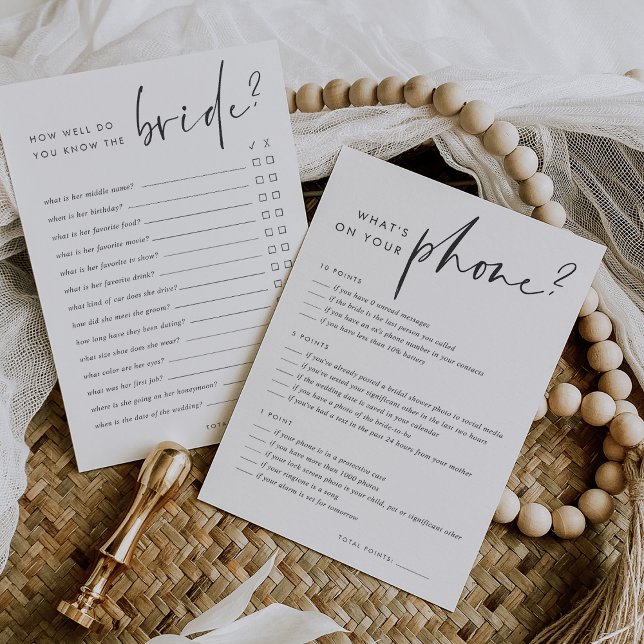 HOW WELL DO
YOU KNOW THE bride?
✓ X
what is her middle name?
when is her birthday?
what is her favorite food?
what is her favorite movie?
what is her favorite tv show?
what is her favorite drink?
what kind of car does she drive?
how did she meet the groom?
how long have they been dating?
what size shoe does she wear?
what color are her eyes?
what was her first job?
where is she going on her honeymoon?
when is the date of the wedding?
WHAT'S
ON YOUR phone?
10 POINTS
if you have 0 unread messages
if the bride is the last person you called
if you have an ex's phone number in your contacts
if you have less than 10% battery
5 POINTS
if you've already posted a bridal shower photo to social media
if you've texted your significant other in the last two hours
if the wedding date is saved in your calendar
if you have a photo of the bride-to-be
if you've had a text in the past 24 hours from your mother
1 POINT
if your phone is in a protective case
if you have more than 1000 photos
if your lock screen photo is your child, pet or significant other
if your ringtone is a song
if your alarm is set for tomorrow
TOTAL POINTS: